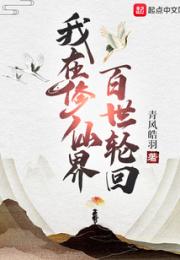 起点中文网
我在修仙界
百世轮回
青风皓羽 著